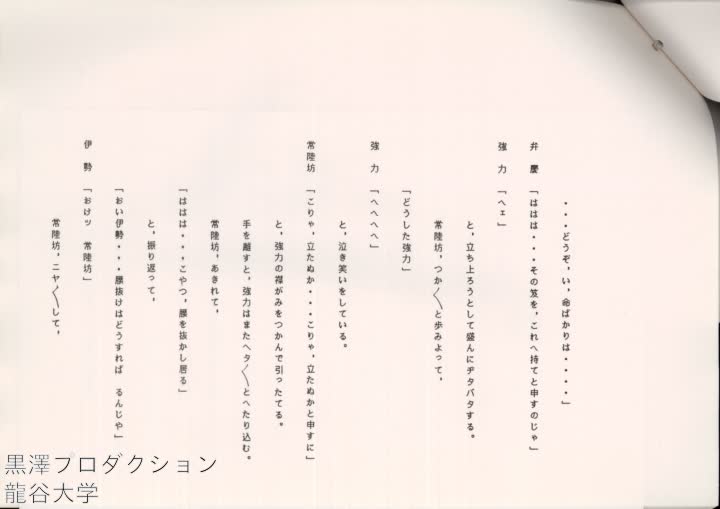 ・・・どうぞ，い，命ばかりは・・・・」
弁慶「ははは・・・その笈を，これへ持てと申すのじゃ」
強力「ヘェ」
と，立ち上ろうとして盛んにヂタバタする。
常陸坊，つか〱と歩みよって，
「どうした強力」
強力「へへへへ」
と，泣き笑いをしている。
常陸坊「こりゃ，立たぬか・・・こりゃ，立たぬかと申すに」
と，強力の襟がみをつかんで引ったてる。
手を離すと，強力はまたヘタ〱とへたり込む。
常陸坊，あきれて，
「ははは・・・こやつ，腰を抜かし居る」
と，振り返って，
「おい伊勢・・・腰抜けはどうすれば　るんじや」
伊勢「おけッ　常陸坊」
常陸坊，ニヤ〱して，
黒澤プロダクション
龍谷大学